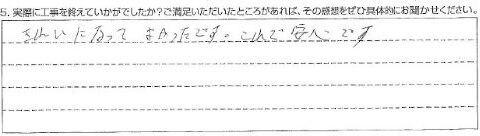 5. 実際に工事を終えていかがでしたか?ご満足いただいたところがあれば、その感想をぜひ具体的にお聞かせください。
きれいになって よかったです。これで安心です